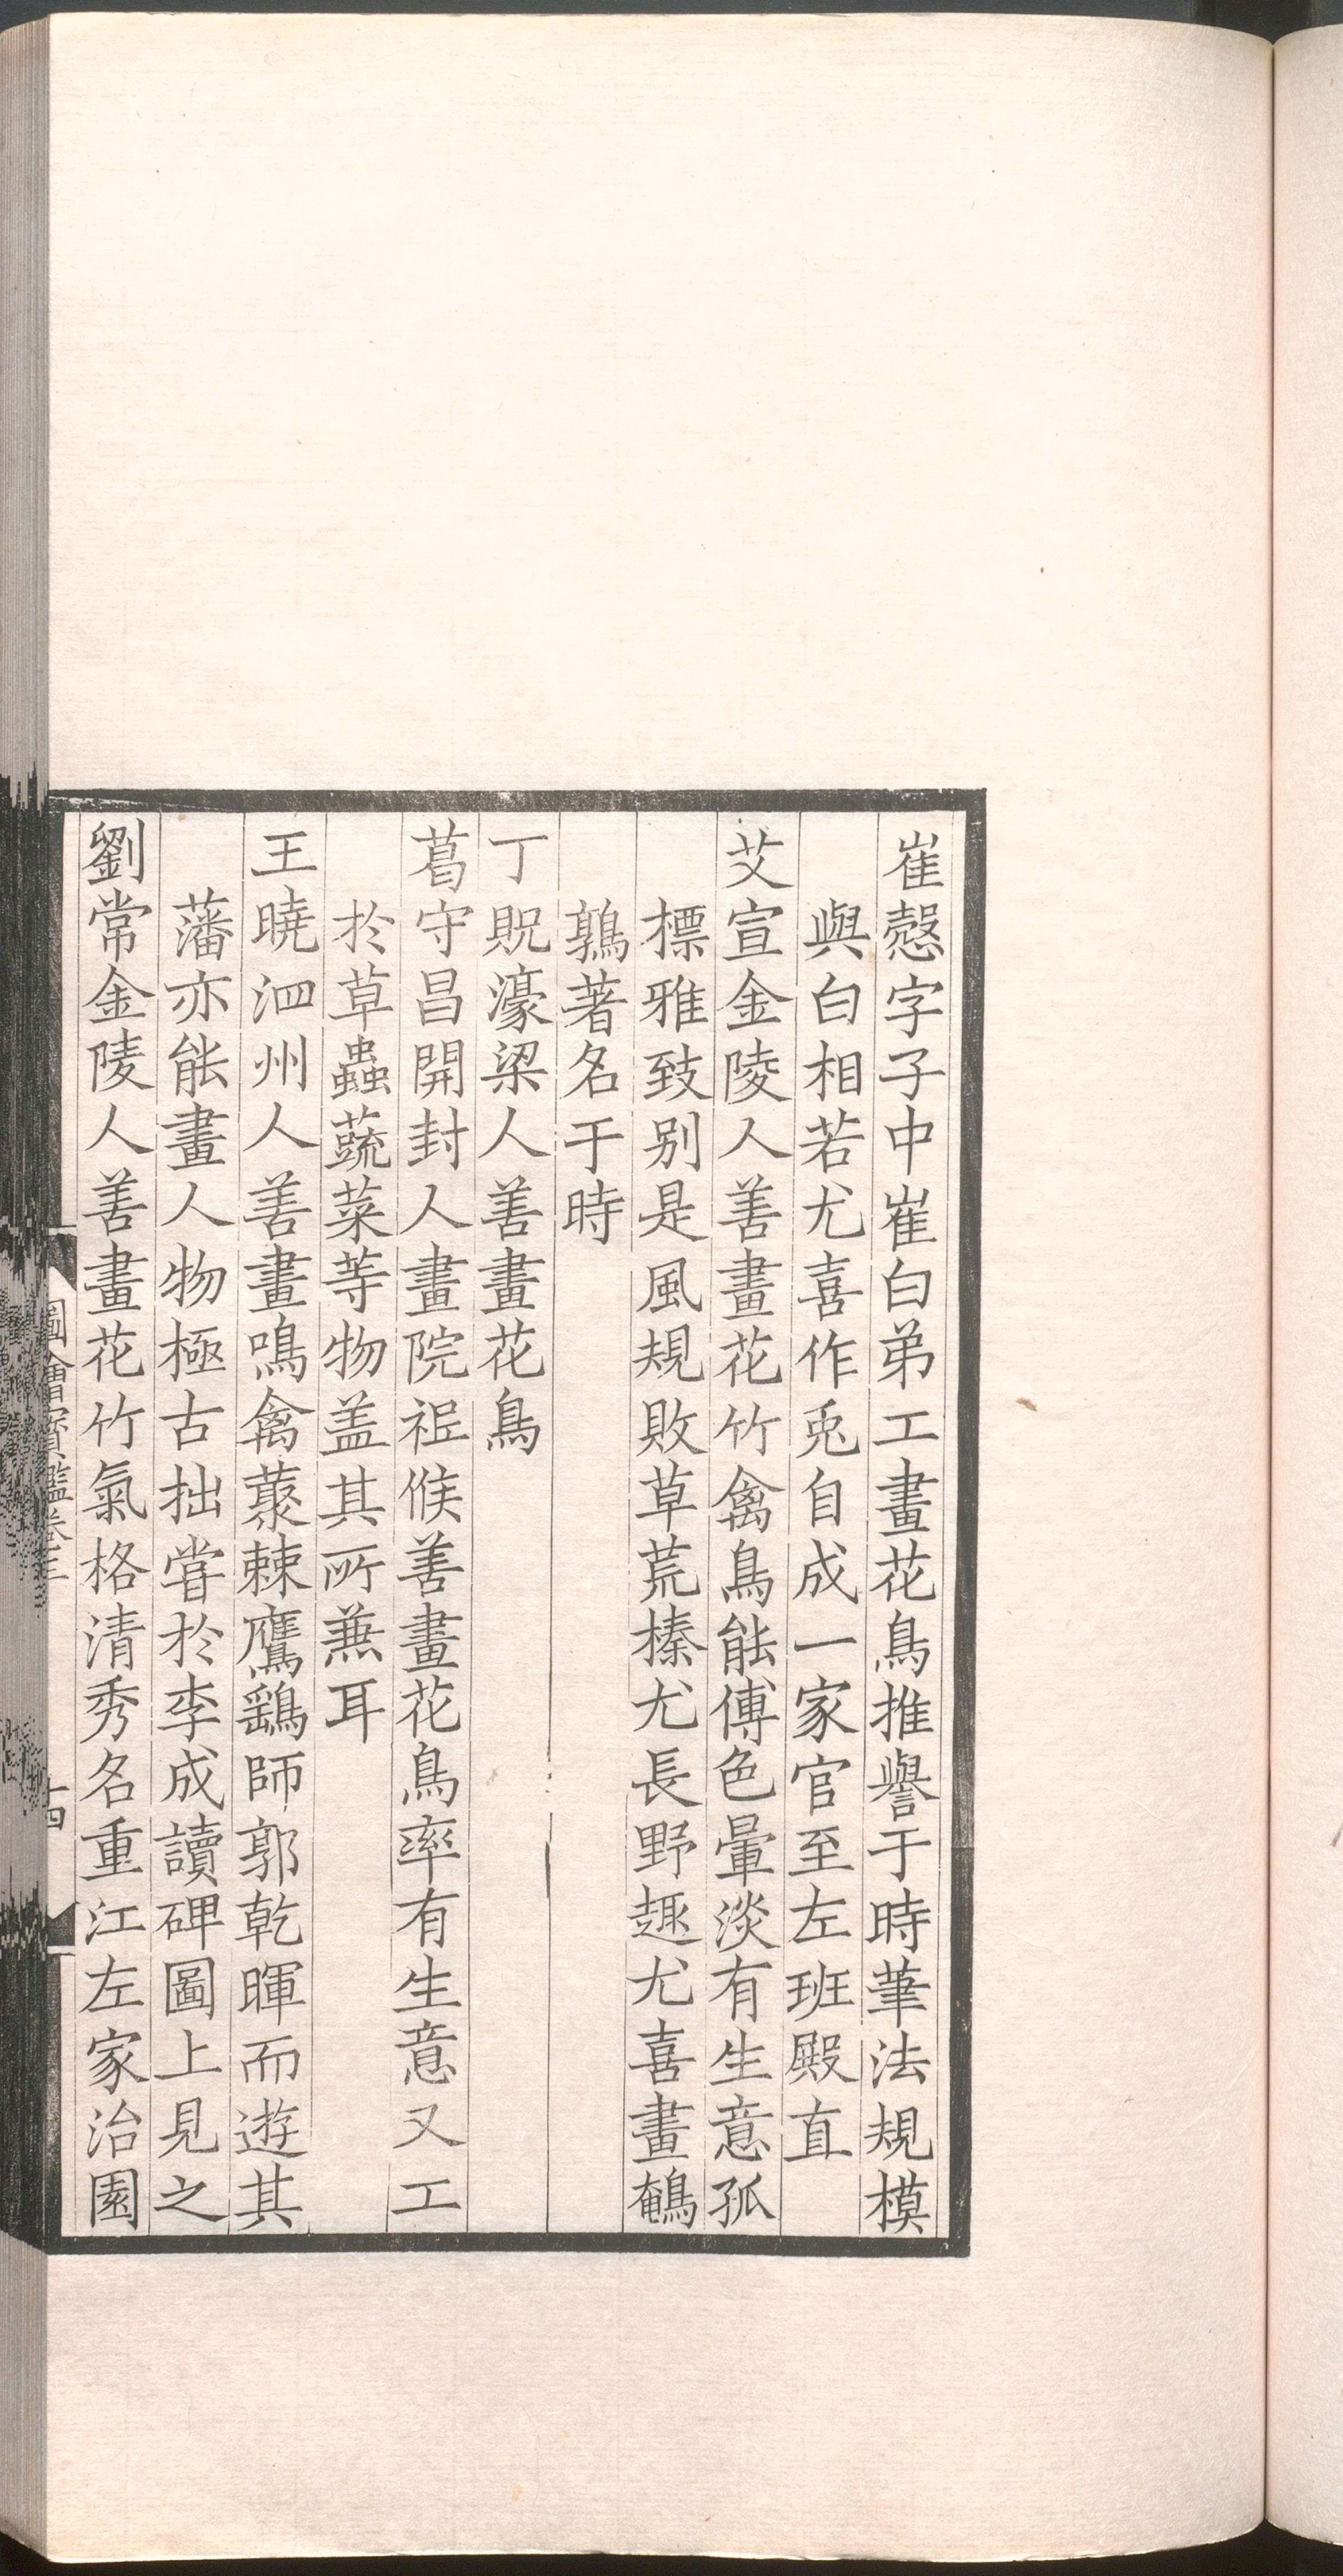 崔慤字子中崔白弟工畫花鳥推譽于時筆法規模
與白相若尤喜作兎自成一家官至左班殿直
艾宣金陵人善畫花竹禽鳥能傅色暈淡有生意孤
標雅致别是風規敗草荒榛尤長野趣尤喜畫鵪
鶉著名于時
丁貺濠梁人善畫花鳥
葛守昌開封人畫院祗候善畫花鳥率有生意又工
於草蟲蔬菜等物盖其所兼耳
王曉泗州人善畫鳴禽藂棘鷹鷂師郭乾暉而遊其
藩亦能畫人物極古拙嘗於李成讀碑圖上見之
劉常金陵人善畫花竹氣格清秀名重江左家治園
圖繪寶鑑卷三
十四